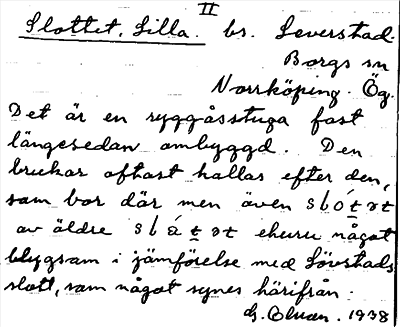 II
Slottet, Lilla. bs. Leverstad.
Borgs sn
Norrköping. Ög.
Det är en ryggåsstuga fast
längesedan ombyggd. Den
brukar oftast kallas efter den,
som bor där men även
av äldre ehuru något
blygsam i jämförelse med Lövstads
slott, som något synes härifrån.
1938